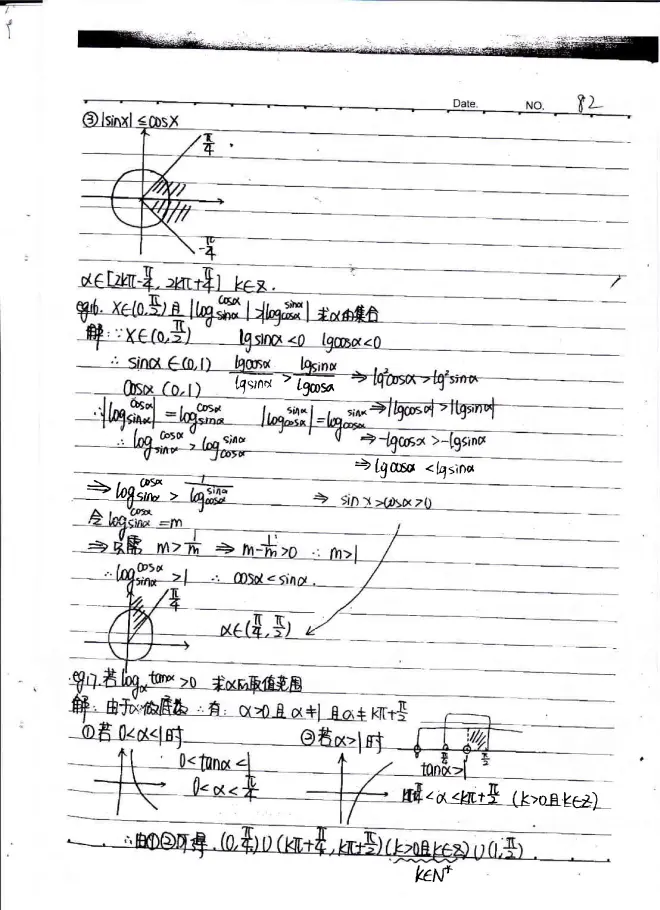 Date. NO. 82
③ |sinx| ≤ cosx
π/4
-π/4
α∈[2kπ-π/4, 2kπ+π/4] k∈Z.
eg16. X∈(0,π/2)且 |log_sinα cosα| > |log_cosα sinα| 求α的集合
解: ∵X∈(0,π/2) lgsinα<0 lgcosα<0
∴ sinα∈(0,1) lgcosα/lgsinα > lgsinα/lgcosα ⇒ lg²cosα>lg²sinα
cosα (0,1)
∴|log_sinα cosα| = log_sinα cosα |log_cosα sinα| = log_cosα sinα ⇒ |lgcosα|>|lgsinα|
∴ log_sinα cosα > log_cosα sinα ⇒ -lgcosα>-lgsinα
⇒ lgcosα<lgsinα
⇒ log_sinα cosα > 1/log_cosα sinα ⇒ sinx>cosα>0
令 log_sinα cosα = m
⇒只需 m>1/m ⇒ m-1/m>0 ∴ m>1
∴ log_sinα cosα >1 ∴ cosα<sinα.
π/4
α∈(π/4, π/2)
eg17. 若log_α tanα>0 求α的取值范围
解: 由于α做底数 ∴有: α>0且α≠1且α≠kπ+π/2
①若0<α<1时 ②若α>1时
0<tanα<1 tanα>1
0<α<π/4 kπ+π/4<α<kπ+π/2 (k>0且k∈Z)
∴由①②可得. (0,π/4)∪(kπ+π/4, kπ+π/2)(k>0且k∈Z)∪(1,π/2).
k∈N*